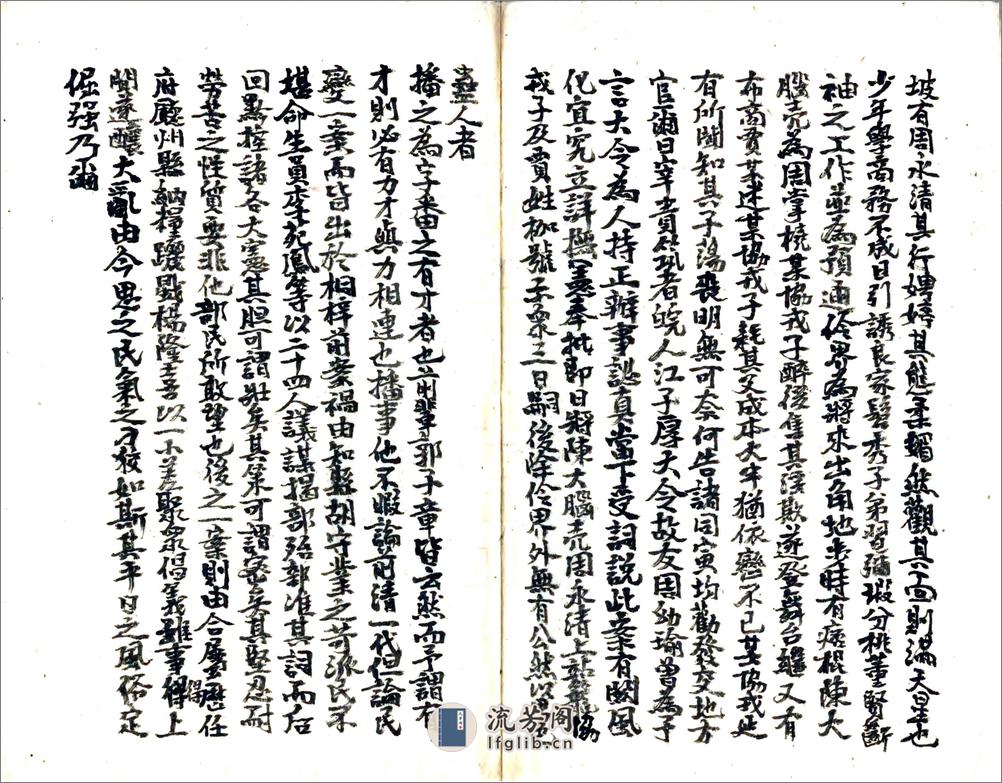 坡有周永清其行娉婷其態柔媚然觀其面則滿天星也
少年學商務不成日引誘良家髫秀子弟習彌瑕分桃董賢斷
袖之工作並為預通伶界為將來出角地步時有痞棍陳大
腦壳為周掌橈某協戎子醉後售其淫欺遂登舞台繼又有
布商賈某述某協戎子耗其父成本大半猶依戀不已某協戎延
有所聞知其子蕩喪明無可奈何告諸同寅均勸發交地方
官適日宰貴筑者皖人江子厚大令故友周幼瑜曾為予
言大令為人持正辦事認真當下受詞說此案有關風
化宜究立詳撫憲奉批即日將陳大腦壳周永清上站籠協
戎子及賈姓枷號示眾三日嗣後除伶界外無有公然
蠱人者
播之為字番之有才者也前輩郭子章皆云然而予謂有
才則必有力才與力相連也播事他不暇論前清一代但論民
變一案而皆出於桐梓前案禍由知縣胡守業之苛派民不
堪命生員李苑鳳等以二十四人議謀揭部殆部准其詞而后
回黔控諸各大憲其胆可謂壯矣其策可謂密矣其堅忍耐
勞苦之性質要非他部民所敢望也後之一案則由合屬歷任
府廳州縣納糧躧戥楊隆喜以一小差聚眾倡義雖事得上
聞遂釀大亂由今思之民氣之刁狡如斯其平日之風俗定
倔強乃爾
得
流芳阁
lfglib.cn